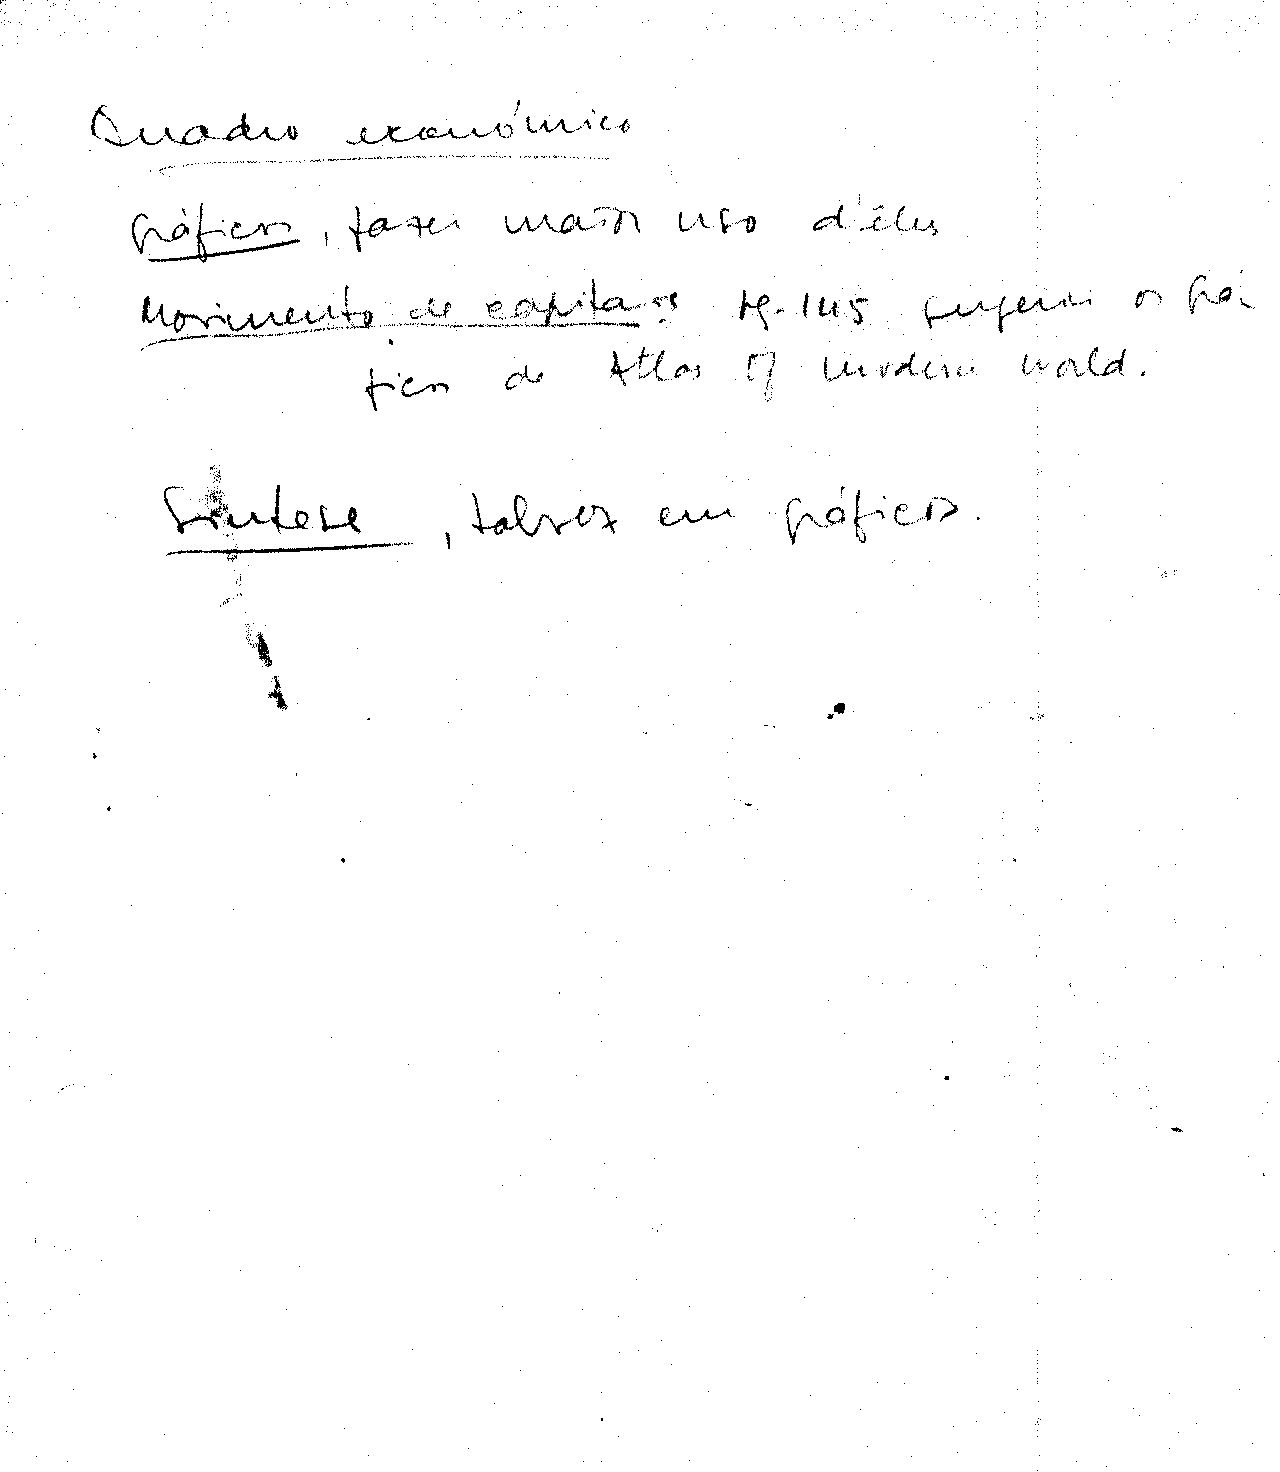 Quadro económico
gráficos, fazer maior uso d'êles
Movimento de capitais pg. 145 sugerir os grá-
ficos do Atlas of modern world.
Síntese, talvez em gráficos.